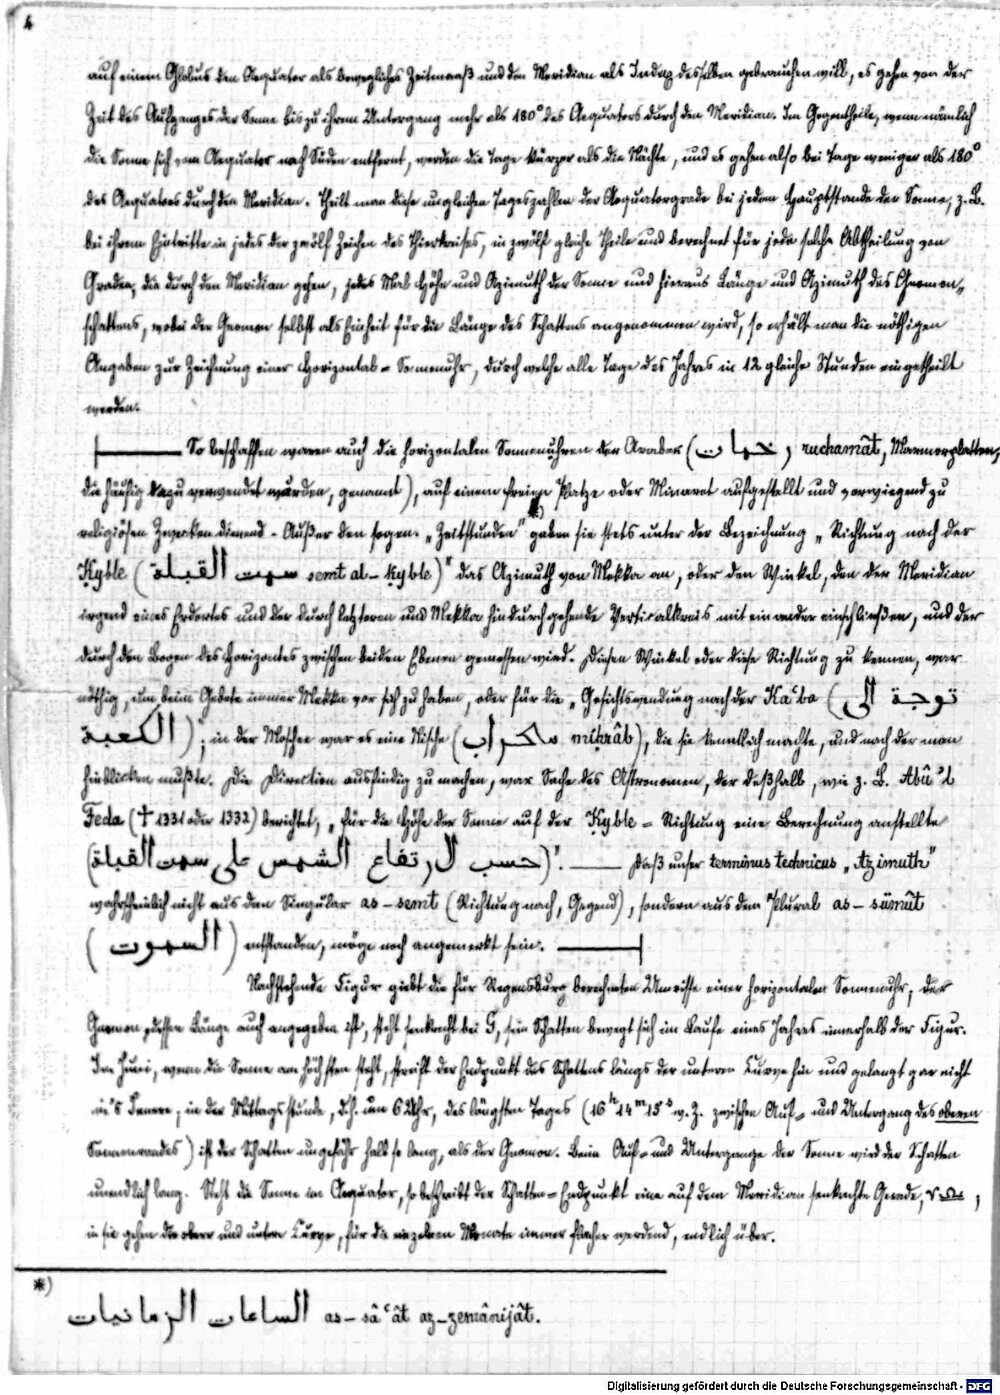 4
auf einem Globus den Aequator als bewegliches Zeitmaaß und den Meridian als Index desselben gebrauchen will, es gehen von der
Zeit des Aufganges der Sonne bis zu ihrem Untergang mehr als 180° des Aequators durch den Meridian. Im Gegentheile, wenn nämlich
die Sonne sich vom Aequator nach Süden entfernt, werden die Tage kürzer als die Nächte, und es gehen also bei Tage weniger als 180°
des Aequators durch den Meridian. Theilt man diese ungleichen Tageszahlen der Aequatorgrade bei jedem Hauptstande der Sonne, z. B.
bei ihrem Eintritte in jedes der zwölf Zeichen des Thierkreises, in zwölf gleiche Theile und berechnet für jede solche Abtheilung von
Graden, die durch den Meridian gehen, jedes Mal Höhe und Azimuth der Sonne und hieraus Länge und Azimuth des Gnomon-
schattens, wobei der Gnomon selbst als Einheit für die Länge des Schattens angenommen wird, so erhält man die nöthigen
Angaben zur Zeichnung einer Horizontal-Sonnenuhr, durch welche alle Tage des Jahres in 12 gleiche Stunden eingetheilt
werden.
So beschaffen waren auch die horizontalen Sonnenuhren der Araber (رخمات ruchamât, Marmorplatten,
die häufig dazu verwendet wurden, genannt), auf einem freien Platze oder Minaret aufgestellt und vorwiegend zu
religiösen Zwecken dienend. Außer den sogen. „Zeitstunden" *) gaben sie stets unter der Bezeichnung „Richtung nach der
Kyble (سمت القبلة semt al-kyble)" das Azimuth von Mekka an, oder den Winkel, den der Meridian
irgend eines Erdortes und der durch letzteren und Mekka hindurchgehende Verticalkreis mit einander einschließen, und der
durch den Bogen des Horizontes zwischen beiden Ebenen gemessen wird. Diesen Winkel oder diese Richtung zu kennen, war
nöthig, um beim Gebete immer Mekka vor sich zu haben, oder für die „Gesichtswendung nach der Kaʿba (توجة الى
الكعبة); in der Moschee war es eine Nische (محراب mihrâb), die sie kenntlich machte, und nach der man
hinblicken mußte. Die Direction ausfindig zu machen, war Sache des Astronomen, der deßhalb, wie z. B. Abû'l
Feda († 1331 oder 1332) berichtet, „für die Höhe der Sonne auf der Kyble-Richtung eine Berechnung anstellte
(حسب الارتفاع الشمس على سمت القبلة)". Daß unser terminus technicus „Azimuth"
wahrscheinlich nicht aus dem Singular as-semt (Richtung nach, Gegend), sondern aus dem Plural as-sümût
(السموت) entstanden, möge noch angemerkt sein.
Nachstehende Figur giebt die für Regensburg berechneten Umrisse einer horizontalen Sonnenuhr; der
Gnomon, dessen Länge auch angegeben ist, steht senkrecht bei G, sein Schatten bewegt sich im Laufe eines Jahres innerhalb der Figur.
Im Juni, wenn die Sonne am höchsten steht, streift der Endpunkt des Schattens längs der unteren Curve hin und gelangt gar nicht
in's Innere; in der Mittagsstunde, d.h. um 6 Uhr, des längsten Tages (16h 14m 15s w. Z. zwischen Auf- und Untergang des oberen
Sonnenrandes) ist der Schatten ungefähr halb so lang, als der Gnomon. Beim Auf- und Untergange der Sonne wird der Schatten
unendlich lang. Steht die Sonne im Aequator, so beschreibt der Schatten-Endpunkt eine auf dem Meridian senkrechte Gerade, ♈♎;
in sie gehen die obere und untere Curve, für die einzelnen Monate immer flacher werdend, endlich über.
*)
الساعات الزمانيات as-sâʿât az-zemânijât.
Digitalisierung gefördert durch die Deutsche Forschungsgemeinschaft - DFG